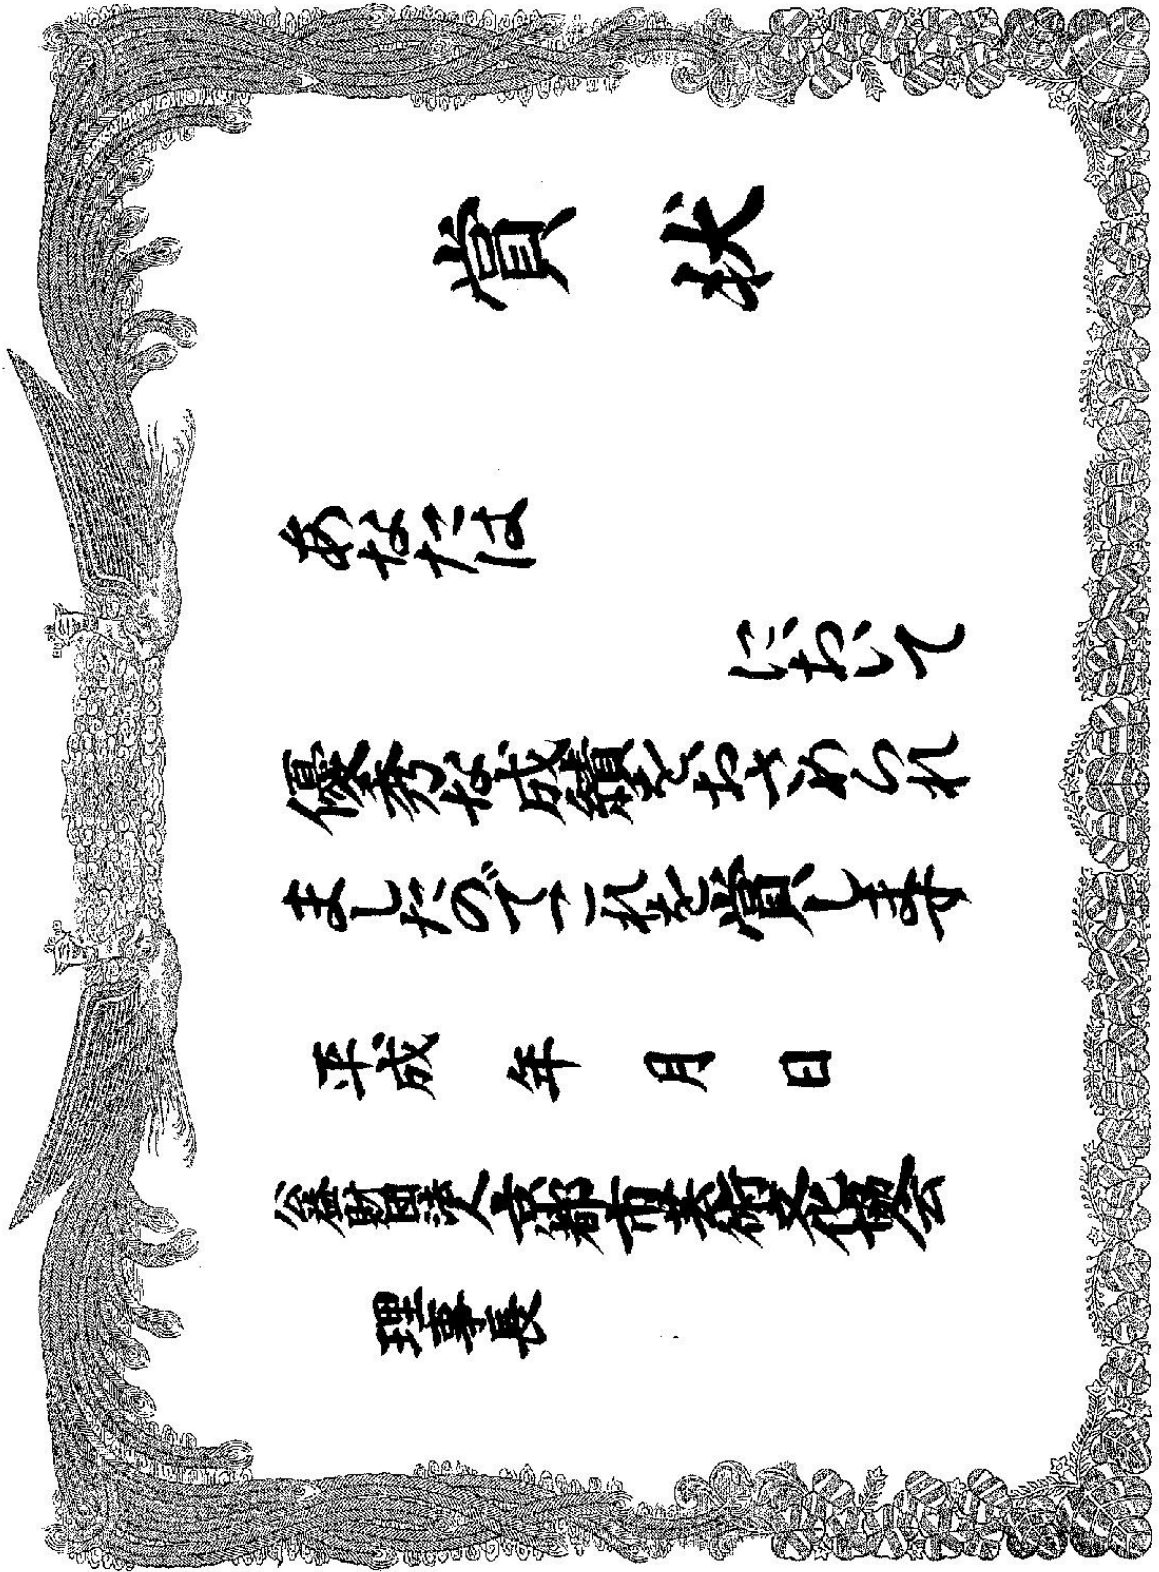 賞状
あなたは
において
優秀な成績をおさめられ
ましたのでこれを賞します
平成 年 月 日
公益財団法人京都市芸術文化協会
理事長